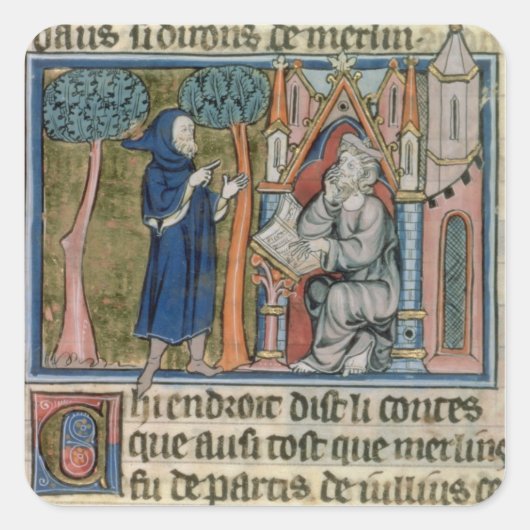 vaus si dirons de merlin.
Chi endroit dist li contes
que ausi tost que merlins
fu departis de iullius ce